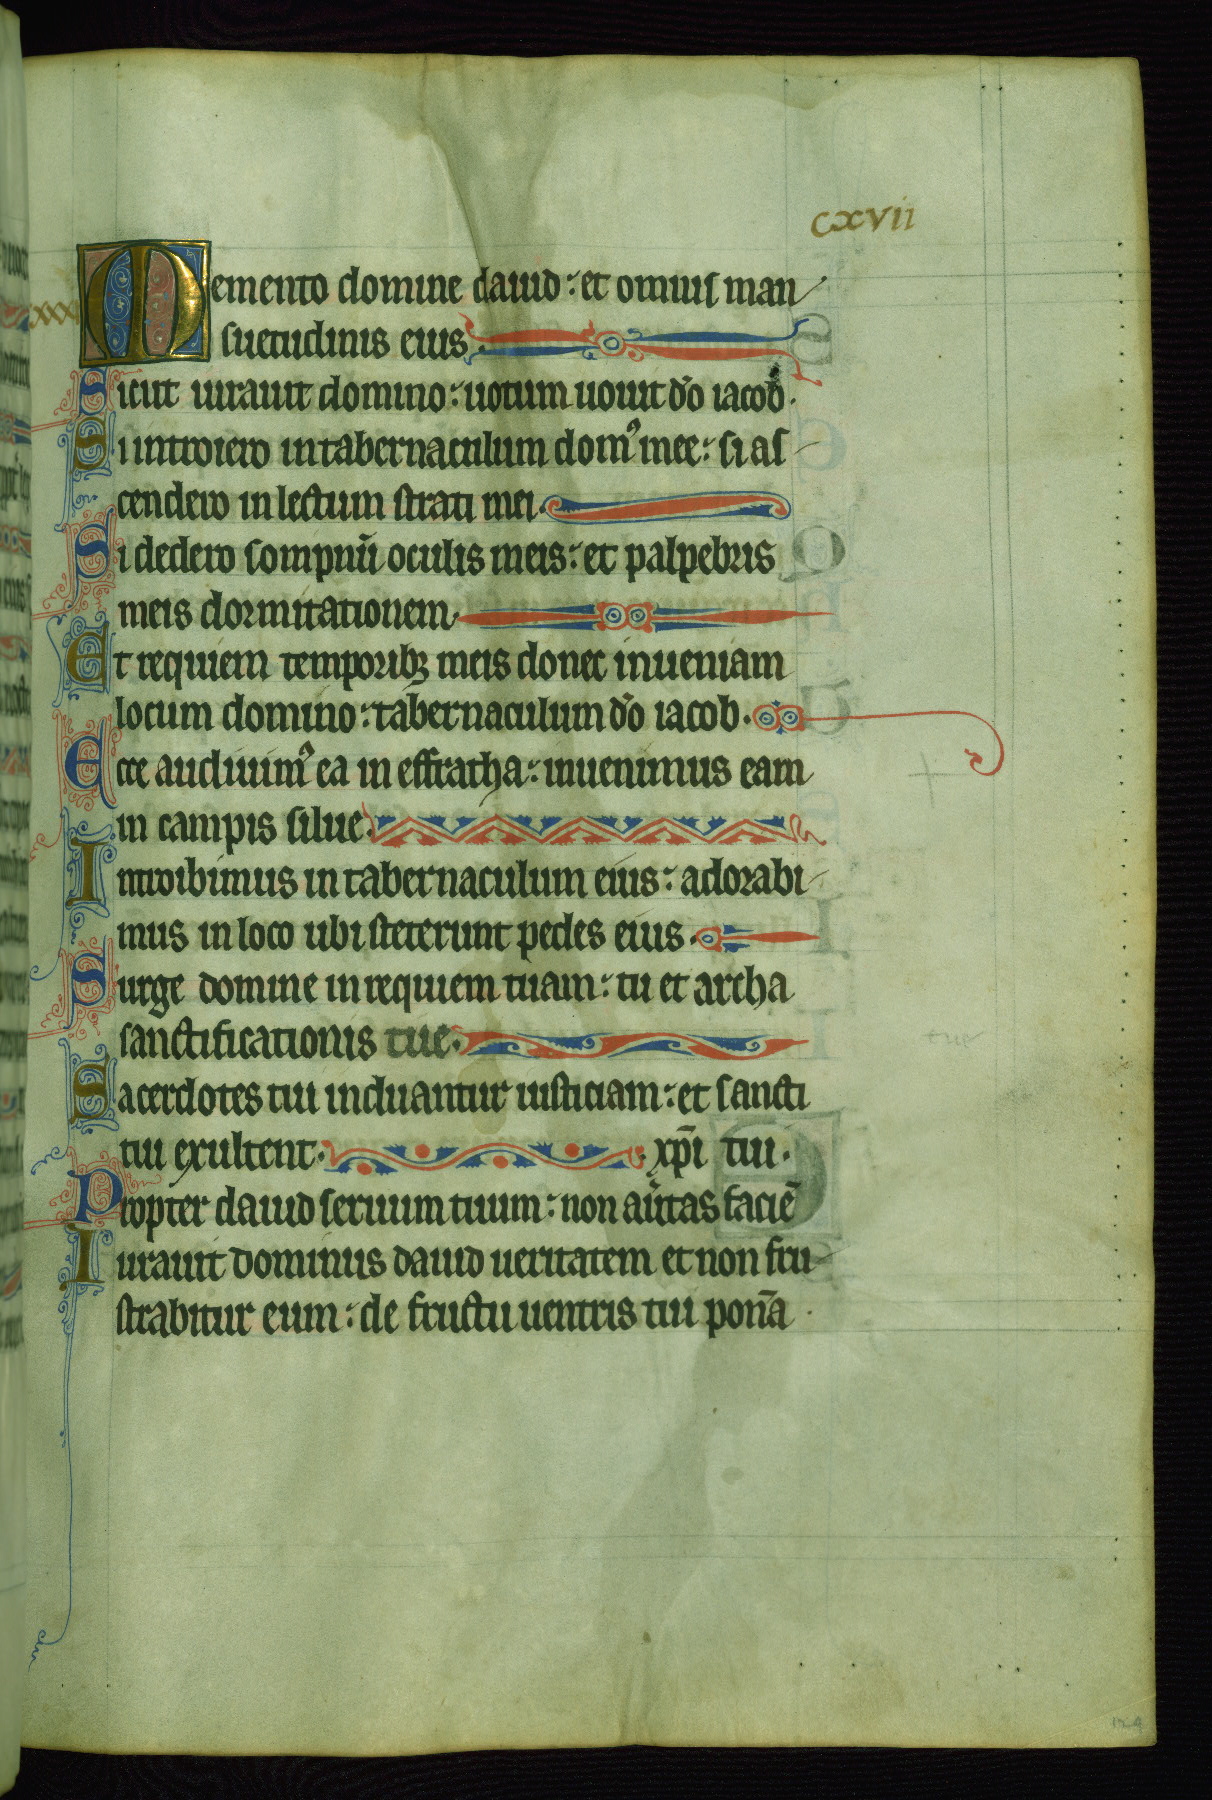 cxvii
Memento domine dauid : et omnis man
suetudinis eius .
Sicut iurauit domino : uotum uouit do̅ iacob .
Si introiero in tabernaculum domꝰ mee : si as
cendero in lectum strati mei .
Si dedero sompnu̅ oculis meis : et palpebris
meis dormitationem .
Et requiem temporibꝫ meis donec inueniam
locum domino : tabernaculum do̅ iacob .
Ecce audiuimꝰ ea in effratha : inuenimus eam
in campis silue .
Introibimus in tabernaculum eius : adorabi
mus in loco ubi steterunt pedes eius .
Surge domine in requiem tuam : tu et archa
sanctificationis tue . tue
Sacerdotes tui induantur iusticiam : et sancti
tui exultent . xp̅i tui .
Propter dauid seruum tuum : non au̅tas facie̅
Iurauit dominus dauid ueritatem et non fru
strabitur eum : de fructu uentris tui pona̅